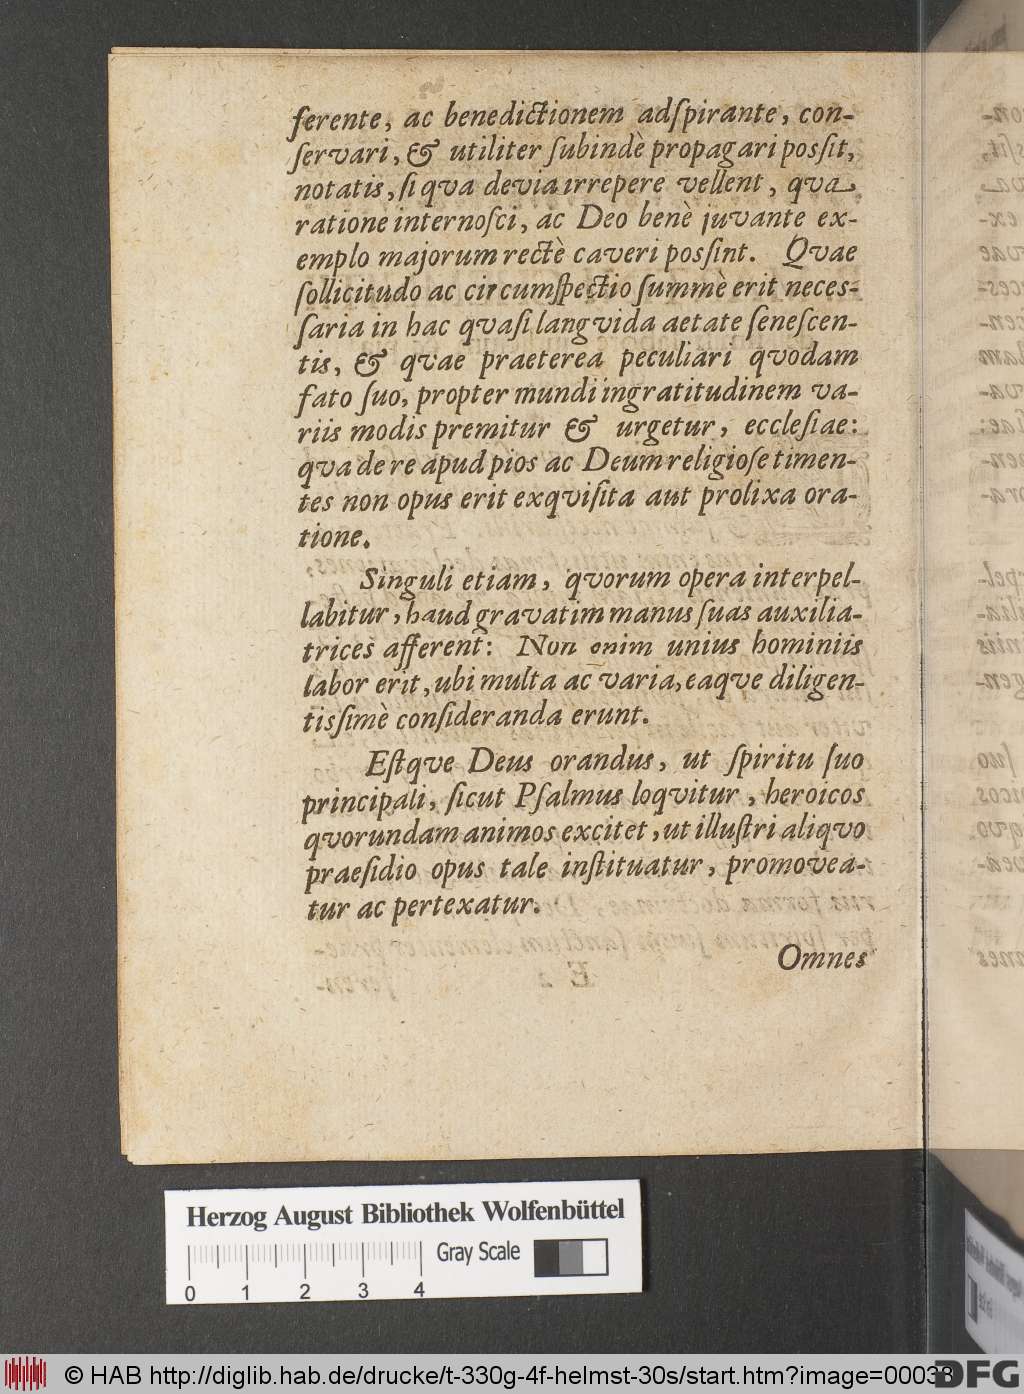 ferente, ac benedictionem adſpirante, con-
ſervari, & utiliter ſubindè propagari poſſit,
notatis, ſi qva devia irrepere vellent, qva
ratione internoſci, ac Deo benè juvante ex-
emplo majorum rectè caveri poſſint. Qvae
ſollicitudo ac circumſpectio ſummè erit neceſ-
ſaria in hac qvaſi langvida aetate ſeneſcen-
tis, & qvae praeterea peculiari qvodam
fato ſuo, propter mundi ingratitudinem va-
riis modis premitur & urgetur, eccleſiae:
qva de re apud pios ac Deum religioſe timen-
tes non opus erit exqviſita aut prolixa ora-
tione.
Singuli etiam, qvorum opera interpel-
labitur, haud gravatim manus ſuas auxilia-
trices afferent: Non enim unius hominiis
labor erit, ubi multa ac varia, eaqve diligen-
tiſſimè conſideranda erunt.
Eſtqve Deus orandus, ut ſpiritu ſuo
principali, ſicut Pſalmus loqvitur, heroicos
qvorundam animos excitet, ut illuſtri aliqvo
praeſidio opus tale inſtituatur, promovea-
tur ac pertexatur.
Omnes
Herzog August Bibliothek Wolfenbüttel
Gray Scale
0 1 2 3 4
© HAB http://diglib.hab.de/drucke/t-330g-4f-helmst-30s/start.htm?image=00038
DFG